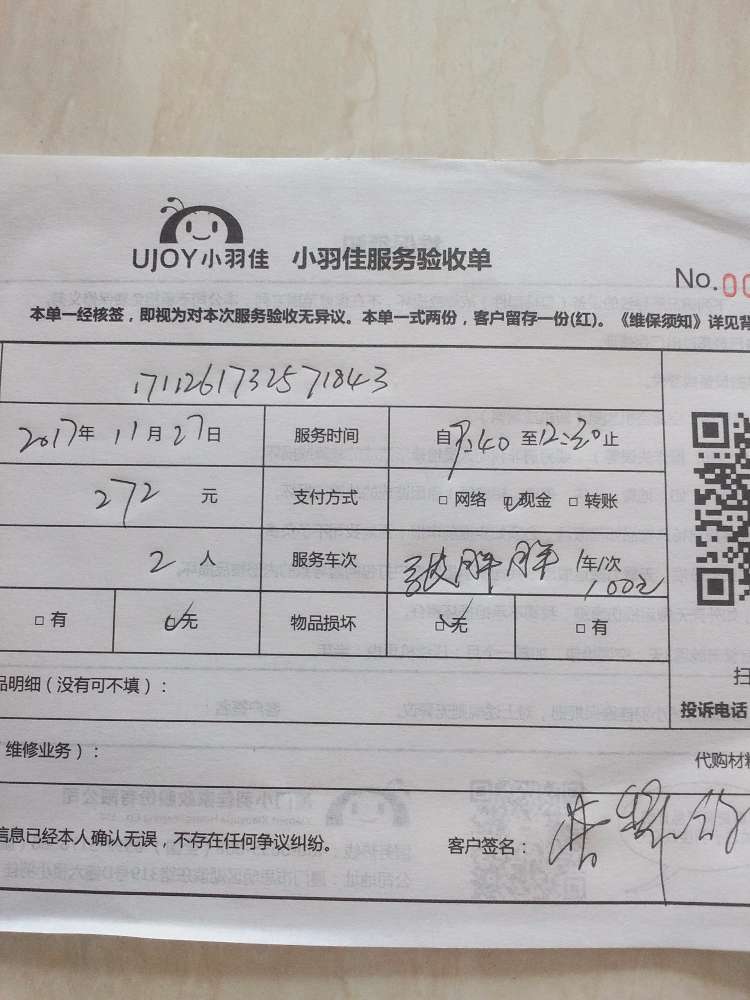 UJOY小羽佳 小羽佳服务验收单
No.00
本单一经核签，即视为对本次服务验收无异议。本单一式两份，客户留存一份(红)。《维保须知》详见背
1711261732571843
2017年 11月27日 服务时间 自 :40 至12:30止
272 元 支付方式 □ 网络 ☑现金 □ 转账
2 人 服务车次 张胖胖 1车1次
100元
□ 有 ☑无 物品损坏 ☑无 □ 有
品明细（没有可不填）：
扫
投诉电话
维修业务）：
代购材料
信息已经本人确认无误，不存在任何争议纠纷。 客户签名：